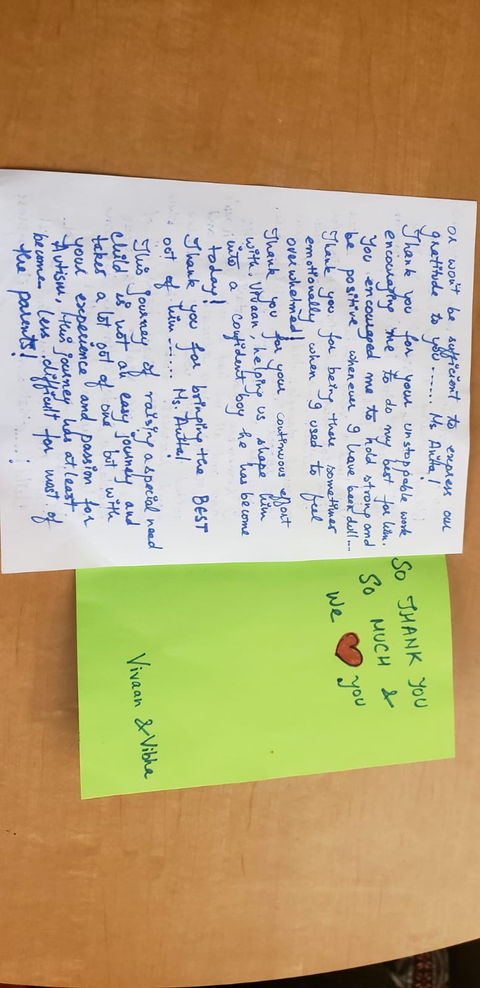 or won't be sufficient to express our
gratitude to you ...... Ms. Anita!
Thank you for your unstoppable work
encouraging me to do my best for him.
You encouraged me to hold strong and
be positive whenever I have been dull...
Thank you for being there sometimes
emotionally when I used to feel
overwhelmed!
Thank you for your continuous effort
with Vivaan, helping us shape him
into a confident boy he has become
today!
Thank you for bringing the BEST
out of him ....... Ms. Anita!
This journey of raising a special need
child is not an easy journey and
takes a lot out of one but with
your experience and passion for
Autism, this journey has at least
become less difficult for most of
the parents! ......
SO THANK YOU
SO MUCH &
We YOU
Vivaan & Vibha